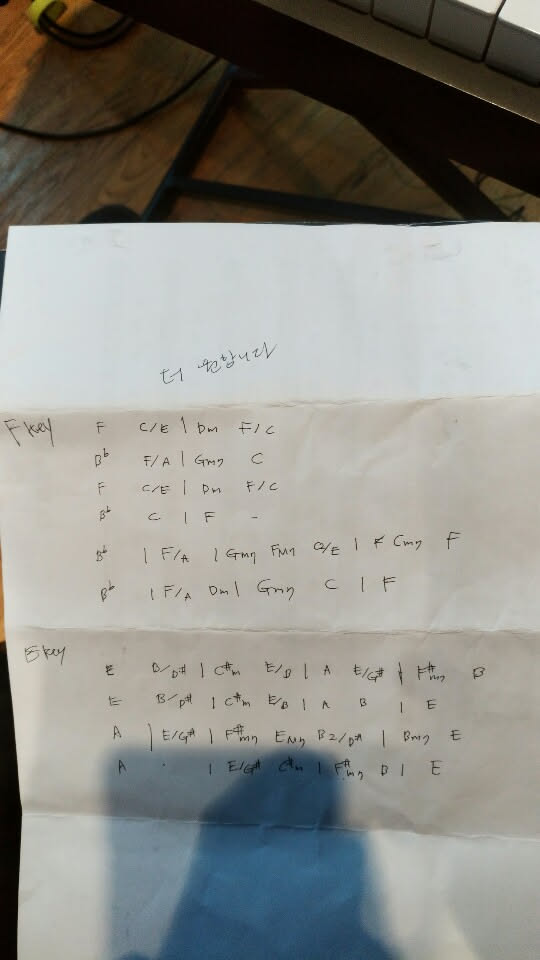 더 원합니다
F key F C/E | Dm F/C
Bb F/A | Gm7 C
F C/E | Dm F/C
Bb C | F -
Bb | F/A | Gm7 FM7 C/E | F Cm7 F
Bb | F/A Dm | Gm7 C | F
E key E B/D# | C#m E/B | A E/G# | F#m7 B
E B/D# | C#m E/B | A B | E
A | E/G# | F#m7 EM7 B2/D# | Bm7 E
A . | E/G# C#m | F#m7 B | E